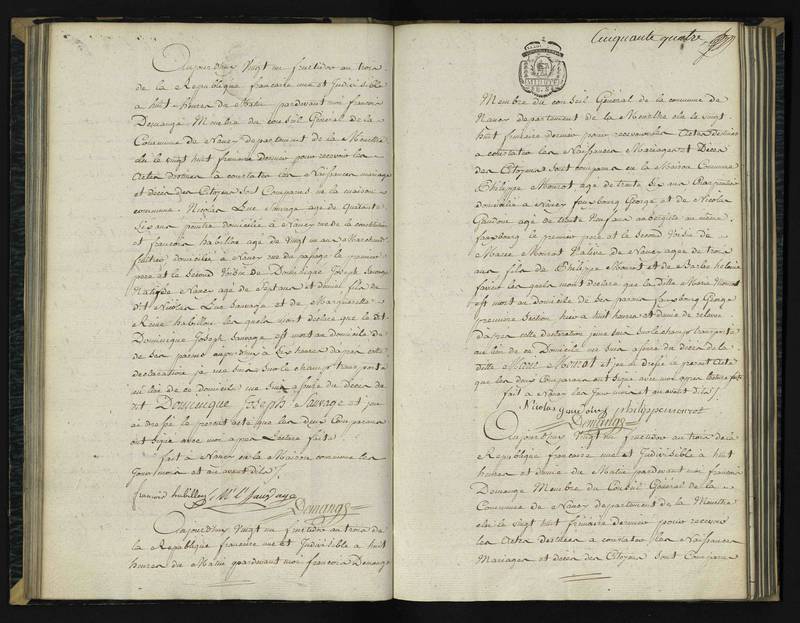 Aujourdhuy Vingt un fructidor an trois
de la Republique francaise une et Indivisible
a huit heures du Matin pardevant moi francois
Demange Membre du conseil Général de la
Commune de Nancy departement de la Meurthe
élu le vingt huit frimaire dernier pour recevoir les
Actes destinés a constater les Naissances mariages
et décès des Citoyens sont Comparus en la maison
commune. Nicolas Luc Sauvage agé de quarante
six ans domicilié a Nancy rue de la constitution
et francois habillon agé de Vingt un ans Marchand
domicilié a Nancy rue du le premier
pere et le Second Voisin de Dominique Joseph Sauvage
Natif de Nancy agé de Sept ans et demi fils de
dt Nicolas Luc Sauvage et de Marguerite
Reine habillon les quels mont déclaré que le dt
Dominique Joseph Sauvage est mort au domicile de
de ses parens aujourdhuy a six heures dapres cette
declaration je me suis sur le champ transporté
au lieu de ce domicile me suis assuré du deces de
dt Dominique Joseph Sauvage et jai
dressé le present acte que les deux Comparans
ont signé avec moi apres Lecture faite
fait a Nancy en la Maison commune les
Jour mois et an avant dits
francois hubillon Sauvage
Demange
Aujourdhuy Vingt un fructidor an trois de
la Republique francaise une et Indivisible a huit
heures du Matin pardevant moi francois Demange
Cinquante quatre
Membre du conseil Général de la commune de
Nancy departement de la Meurthe élu le vingt
huit frimaire dernier pour recevoir les Actes destinés
a constater les Naissances Mariages et Décès
des Citoyens sont comparus en la Maison Commune
Philippe Monrot agé de trente six ans Charpentier
domicilié a Nancy fauxbourg George et de Nicolas
agé de trente neuf ans aubergiste au même
fauxbourg le premier pere et le Second Voisin de
Marie Monrot Native de Nancy agée de trois
ans fils de Philippe Monrot et de Barbe helene
les quels mont declaré que la ditte Marie Monrot
est mort au domicile de ses parens fauxbourg George
premiere Section hier a huit heures et demie de relevée
dapres cette declaration jeme suis sur le champ transporté
au lieu de ce Domicile me suis assuré du décès de la
ditte Marie Monrot et jai dressé le present Acte
que les deux Comparans ont Signé avec moi apres lecture faite
fait a Nancy les Jour mois et an avant dits
Nicolas philippe monrot
Demange
Aujourdhuy Vingt un fructidor an trois de la
Republique francaise une et Indivisible a huit
heures et demie du Matin pardevant moi francois
Demange Membre du Conseil Général de la
Commune de Nancy departement de la Meurthe
élu le Vingt huit frimaire dernier pour recevoir
les Actes destinés a constater les Naissances
Mariages et décès des Citoyens sont Comparus